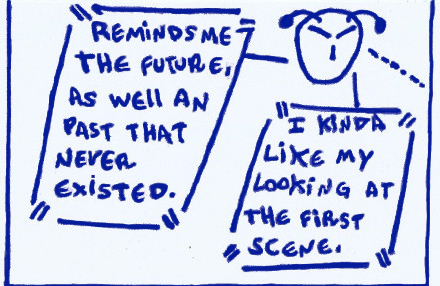 REMINDS ME
THE FUTURE,
AS WELL AN
PAST THAT
NEVER
EXISTED.
I KINDA
LIKE MY
LOOKING AT
THE FIRST
SCENE.